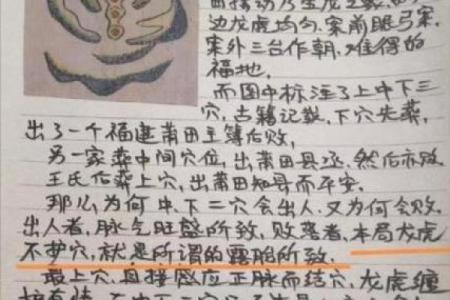 边龙虎均匀.案前眠弓案,
案外三台作朝,难得的
福地.
而图中标注了上中下三
穴,古籍记载,下穴先葬,
出了一个福建莆田主簿后败,
另一家葬中间穴位,出莆田县丞.然后亦败
王氏后葬上穴,出莆田知县而平安.
那么为何中.下二穴会出人.又为何会败.
出人者,脉气旺盛所致,败落者,本局龙虎
不护穴,就是所谓的露胎所致.
最上穴,直接感应正脉而结穴,龙虎缠